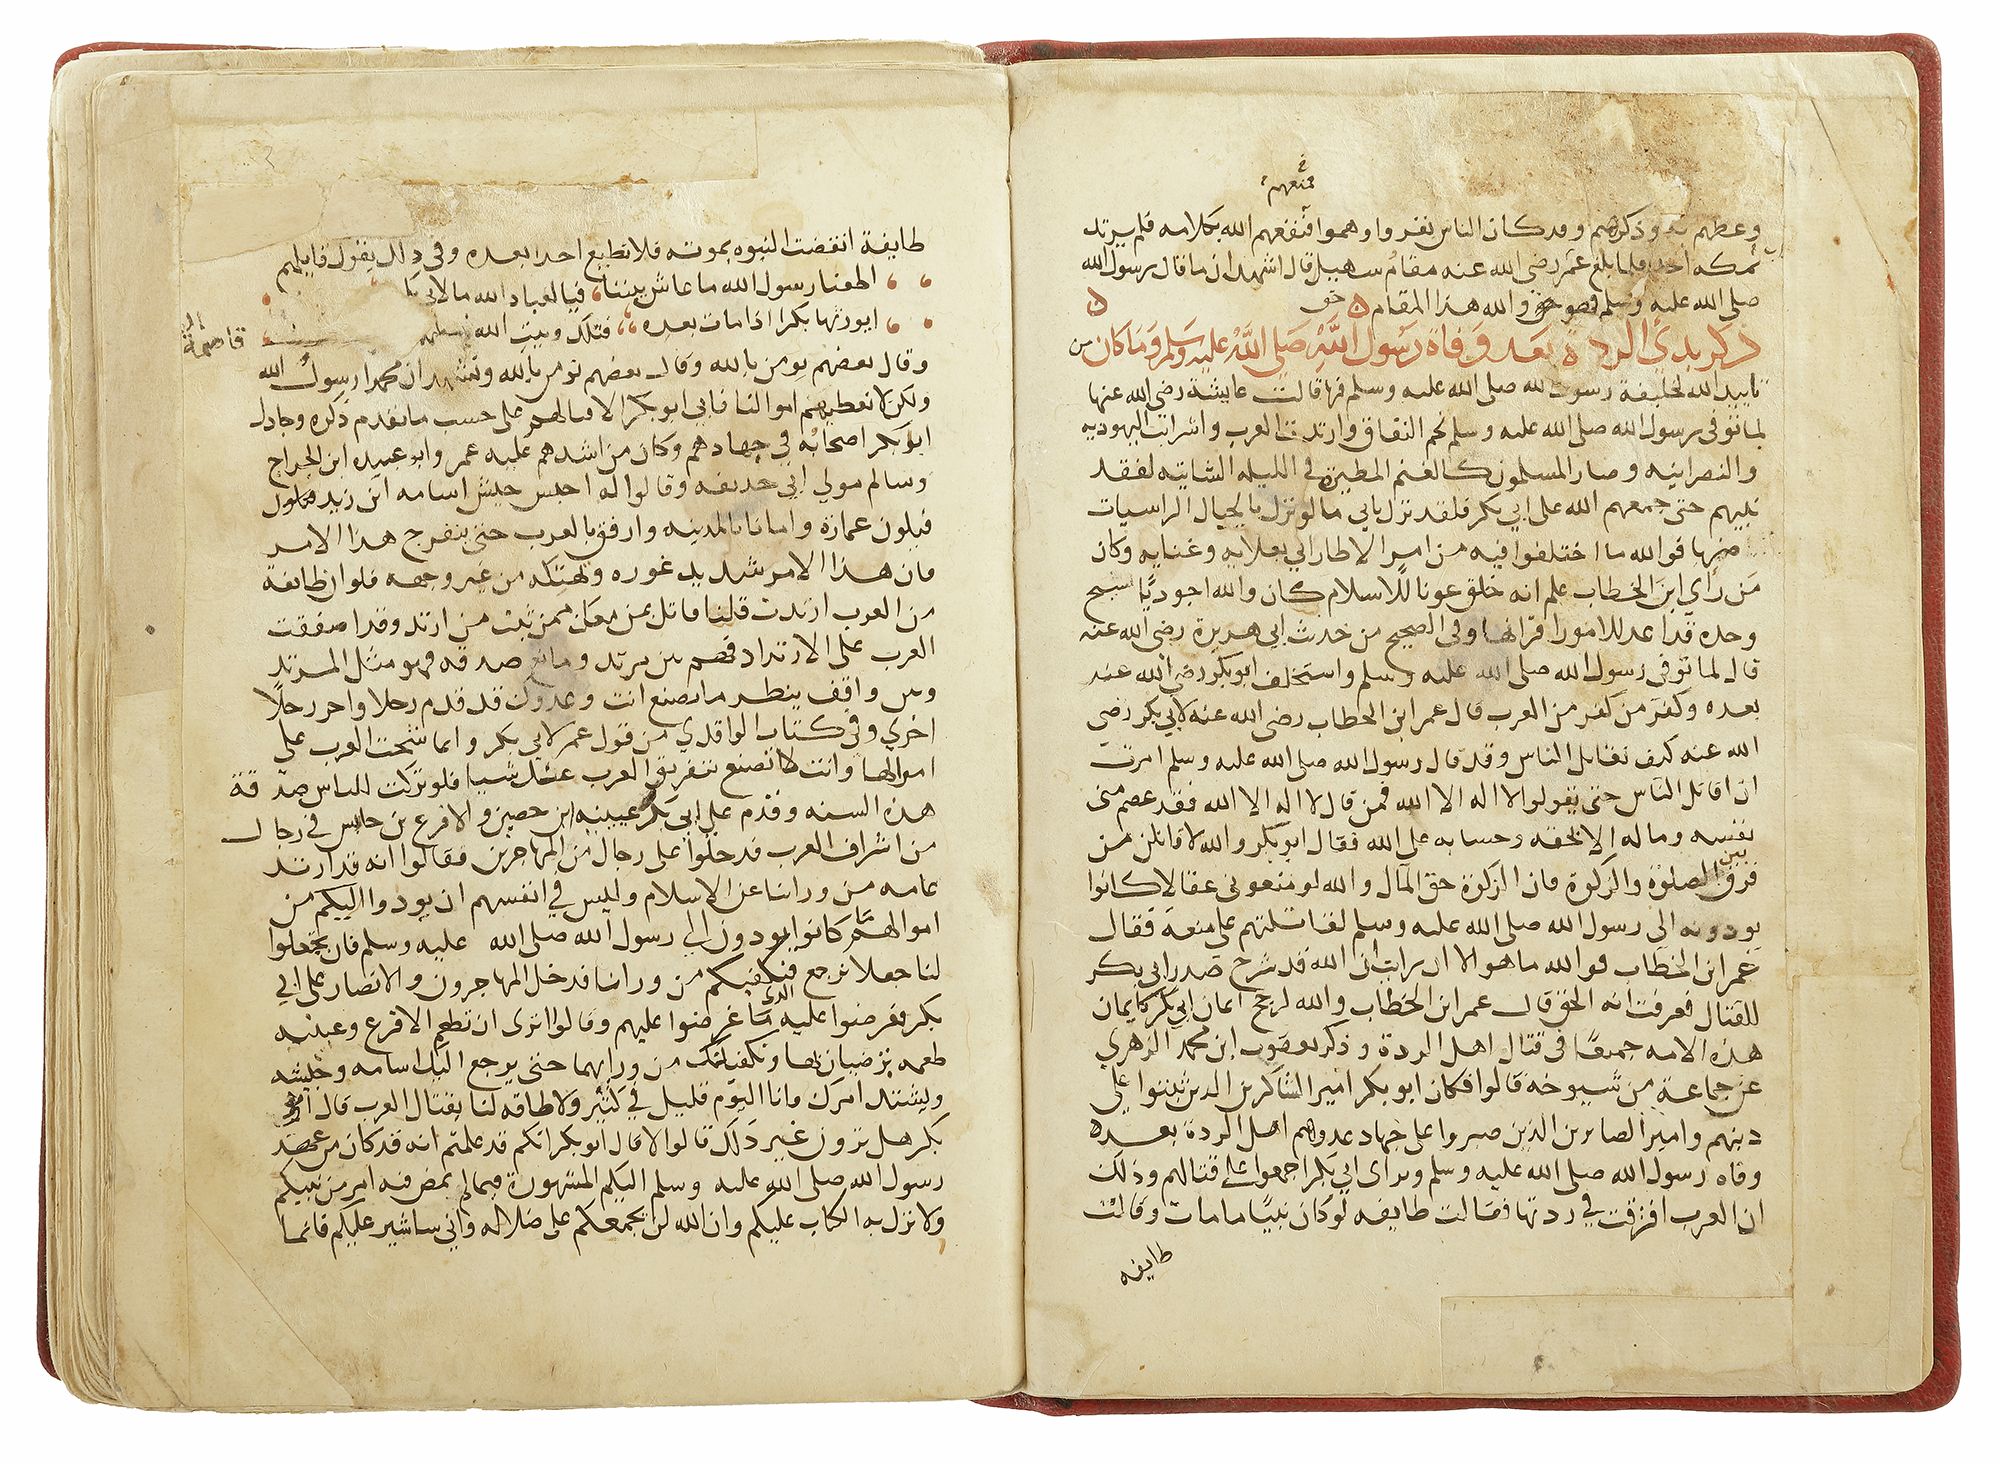 فمنعهم
وعظهم به وذكرهم وقد كان الناس نفروا وهموا فنفعهم الله بكلامه فلم يرتد
بمكه احد فلما بلغ عمر رضي الله عنه مقام سهيل قال اشهد ان ما قال رسول الله
صلى الله عليه وسلم فهو حق والله هذا المقام
ذكر بدئ الردة بعد وفاة رسول الله صلى الله عليه وسلم وما كان من
تاييد الله لخليفة رسول الله صلى الله عليه وسلم فيها قالت عايشة رضي الله عنها
لما توفي رسول الله صلى الله عليه وسلم نجم النفاق وارتدت العرب واشرأبت اليهوديه
والنصرانيه وصار المسلمون كالغنم المطيرة في الليله الشاتيه لفقد
نبيهم حتى جمعهم الله على ابي بكر فلقد نزل بابي ما لو نزل بالجبال الراسيات
لهاضها فوالله ما اختلفوا فيه من امر الا طار ابي بعلايه وغنايه وكان
من راي ابن الخطاب علم انه خلق عونا للاسلام كان والله احوذيا نسيج
وحده قد اعد للامور اقرانها وفي الصحيح من حديث ابي هريرة رضي الله عنه
قال لما توفي رسول الله صلى الله عليه وسلم واستخلف ابو بكر رضي الله عنه
بعده وكفر من كفر من العرب قال عمر ابن الخطاب رضي الله عنه لابي بكر رضي
الله عنه كيف نقاتل الناس وقد قال رسول الله صلى الله عليه وسلم امرت
ان اقاتل الناس حتى يقولوا لا اله الا الله فمن قال لا اله الا الله فقد عصم مني
نفسه وماله الا بحقه وحسابه على الله فقال ابو بكر والله لاقاتلن من
فرق بين الصلوة والزكوة فان الزكوة حق المال والله لو منعوني عقالا كانوا
يودونه الى رسول الله صلى الله عليه وسلم لقاتلتهم على منعه فقال
عمر ابن الخطاب فوالله ما هو الا ان رايت ان الله قد شرح صدر ابي بكر
للقتال فعرفت انه الحق قال عمر ابن الخطاب والله لرجح ايمان ابي بكر بايمان
هذه الامه جميعا في قتال اهل الردة وذكر يعقوب ابن محمد الزهري
عن جماعة من شيوخه قالوا فكان ابو بكر امير الشاكرين الذين ثبتوا على
دينهم وامير الصابرين الذين صبروا على جهاد عدوهم اهل الردة بعده
وفاه رسول الله صلى الله عليه وسلم وبراي ابي بكر اجمعوا على قتالهم وذلك
ان العرب افترقت في ردتها فقالت طايفه لو كان نبيا ما مات وقالت
طايفه
طايفة انقضت النبوه بموته فلا نطيع احدا بعده وفي ذلك يقول قايلهم
اطعنا رسول الله ما عاش بيننا فيا لعباد الله ما لابي بكر
ايورثها بكرا اذا مات بعده فتلك وبيت الله
قاصمة
وقال بعضهم نومن بالله وقال بعضهم نومن بالله ونشهد ان محمدا رسول الله
ولكن لا نعطيهم اموالنا فابى ابو بكر الا قتالهم على حسب ما تقدم ذكره وجادل
ابو بكر اصحابه في جهادهم وكان من اشدهم عليه عمر وابو عبيده ابن الجراح
وسالم مولى ابي حذيفه وقالوا له احبس جيش اسامه ابن زيد فيكون
عمارة وامانا بالمدينه وارفق بالعرب حتى ينفرج هذا الامر
فان هذا الامر شديد غوره ونهتكه من غير وجهه فلو ان طائفة
من العرب ارتدت قلنا قاتل بمن معك ممن ثبت من ارتد وقد اصفقت
العرب على الارتداد فهم بين مرتد ومانع صدقه فهو مثل المرتد
وبين واقف ينظر ما تصنع انت وعدوك قد قدم رجلا واخر رجلا
اخرى وفي كتاب الواقدي من قول عمر لابي بكر وانما شحت العرب على
اموالها وانت لا تصنع بتفريق العرب عنك شيا فلو تركت للناس صدقة
هذه السنه وقدم على ابي بكر عيينه ابن حصين والاقرع بن حابس في رجال
من اشراف العرب فدخلوا على رجال من المهاجرين فقالوا انه قد ارتد
عامه من وراينا عن الاسلام وليس في انفسهم ان يودوا اليكم من
اموالهم ما كانوا يودون الى رسول الله صلى الله عليه وسلم فان تجعلوا
لنا جعلا نرجع فنكفيكم من وراينا فدخل المهاجرون والانصار على ابي
بكر فعرضوا عليه الذي عرضوا عليهم وقالوا نرى ان تطعم الاقرع وعيينه
طعمه يرضيان بها ويكفيانك من ورايهما حتى يرجع اليك اسامه وجيشه
ويشتد امرك فانا اليوم قليل في كثير ولا طاقه لنا بقتال العرب قال ابو
بكر هل ترون غير ذلك قالوا لا قال ابو بكر انكم قد علمتم انه قد كان من عهد
رسول الله صلى الله عليه وسلم اليكم المشورة فيما لم يمض فيه امر من نبيكم
ولا نزل به الكتاب عليكم وان الله لن يجمعكم على ضلاله واني ساشير عليكم فانما